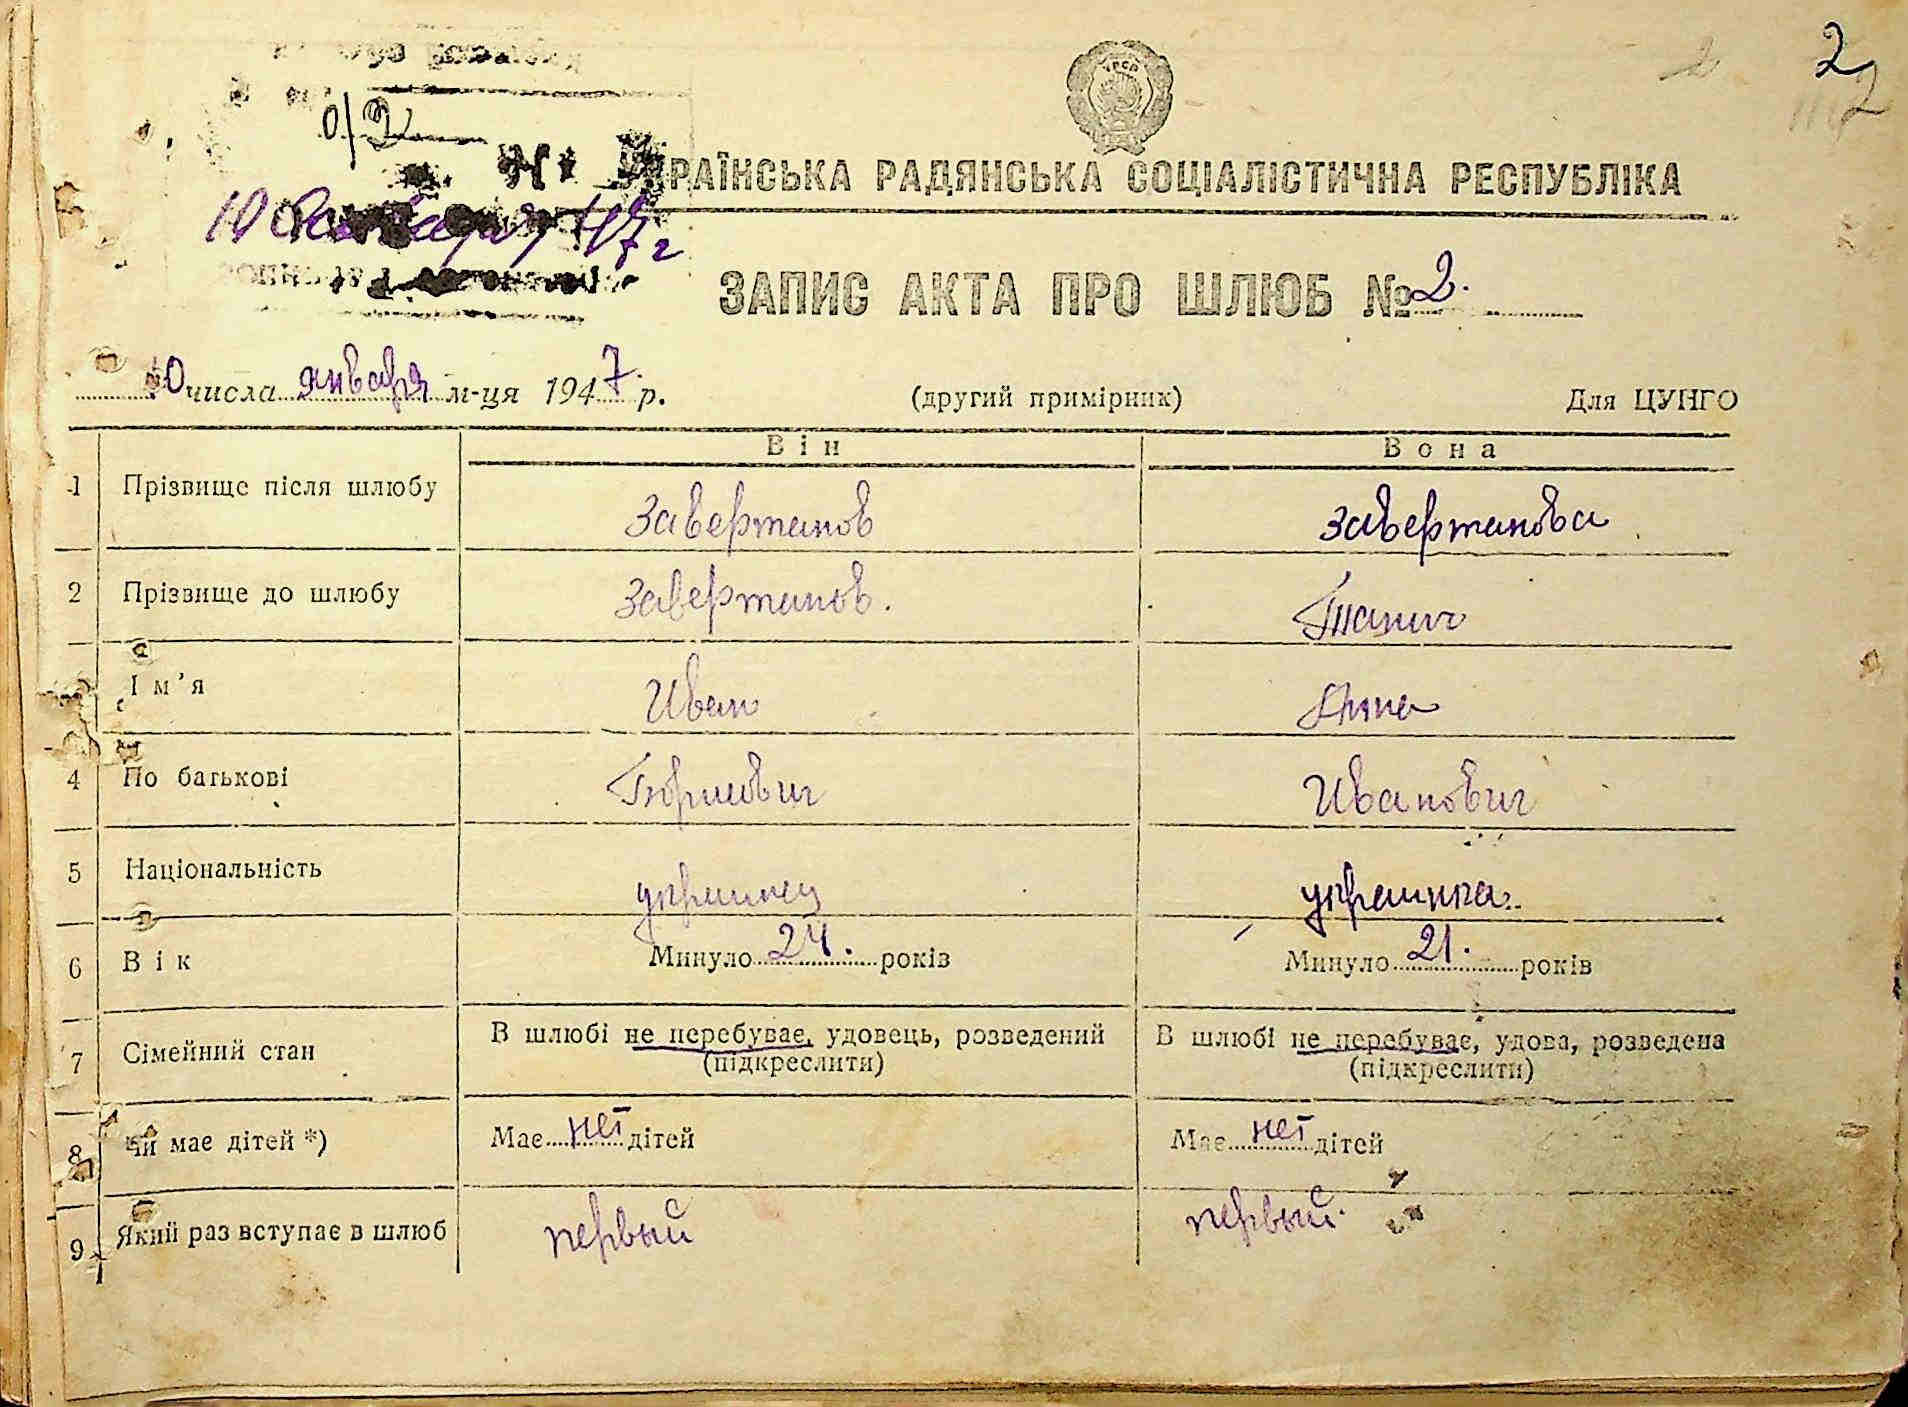 2
2
2
УРСР
0/2
УКРАЇНСЬКА РАДЯНСЬКА СОЦІАЛІСТИЧНА РЕСПУБЛІКА
10 января 47 г
ЗАПИС АКТА ПРО ШЛЮБ № 2.
10 числа января м-ця 1947 р. (другий примірник) Для ЦУНГО
Він Вона
1 Прізвище після шлюбу Завертанов Завертанова
2 Прізвище до шлюбу Завертанов.
Ім'я Иван Анна
4 По батькові Борисович Иванович
5 Національність украинец украинка.
6 Вік Минуло 24. років Минуло 21. років
7 Сімейний стан В шлюбі не перебуває, удовець, розведений В шлюбі не перебуває, удова, розведена
(підкреслити) (підкреслити)
8 Чи має дітей *) Має нет дітей Має нет дітей
9 Який раз вступає в шлюб первый первый.